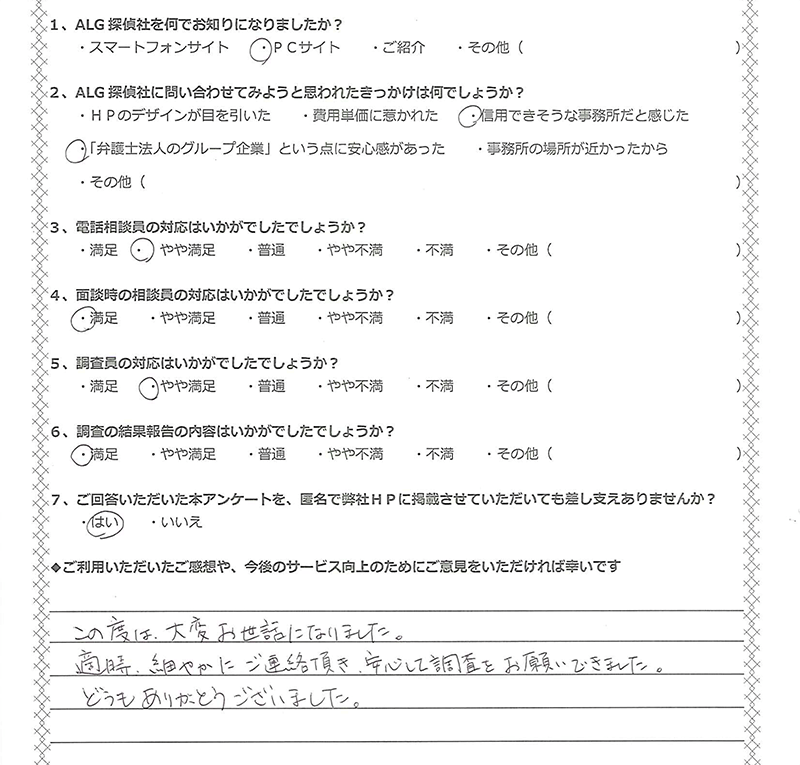 1、ALG探偵社を何でお知りになりましたか？
・スマートフォンサイト ・PCサイト ・ご紹介 ・その他（ ）
2、ALG探偵社に問い合わせてみようと思われたきっかけは何でしょうか？
・HPのデザインが目を引いた ・費用単価に惹かれた ・信用できそうな事務所だと感じた
・「弁護士法人のグループ企業」という点に安心感があった ・事務所の場所が近かったから
・その他（ ）
3、電話相談員の対応はいかがでしたでしょうか？
・満足 ・やや満足 ・普通 ・やや不満 ・不満 ・その他（ ）
4、面談時の相談員の対応はいかがでしたでしょうか？
・満足 ・やや満足 ・普通 ・やや不満 ・不満 ・その他（ ）
5、調査員の対応はいかがでしたでしょうか？
・満足 ・やや満足 ・普通 ・やや不満 ・不満 ・その他（ ）
6、調査の結果報告の内容はいかがでしたでしょうか？
・満足 ・やや満足 ・普通 ・やや不満 ・不満 ・その他（ ）
7、ご回答いただいた本アンケートを、匿名で弊社HPに掲載させていただいても差し支えありませんか？
・はい ・いいえ
❖ご利用いただいたご感想や、今後のサービス向上のためにご意見をいただければ幸いです
この度は、大変お世話になりました。
適時、細やかにご連絡頂き、安心して調査をお願いできました。
どうもありがとうございました。